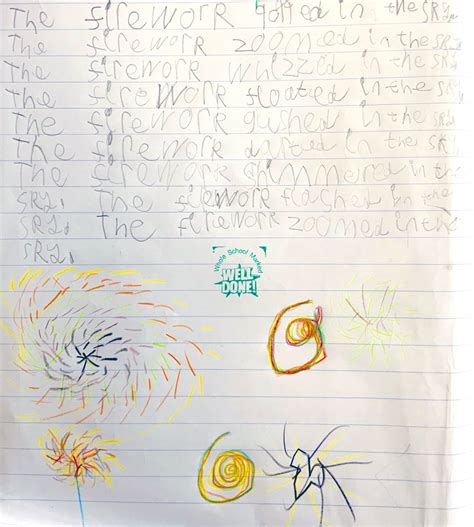 The firework jolted in the sky.
The firework zoomed in the sky.
The firework whizzed in the sky.
The firework floated in the sky.
The firework gushed in the sky.
The firework darted in the sky.
The firework shimmered in the
sky. The firework flashed in the
sky. The firework zoomed in the
sky.
Whole School Marked
WELL
DONE!